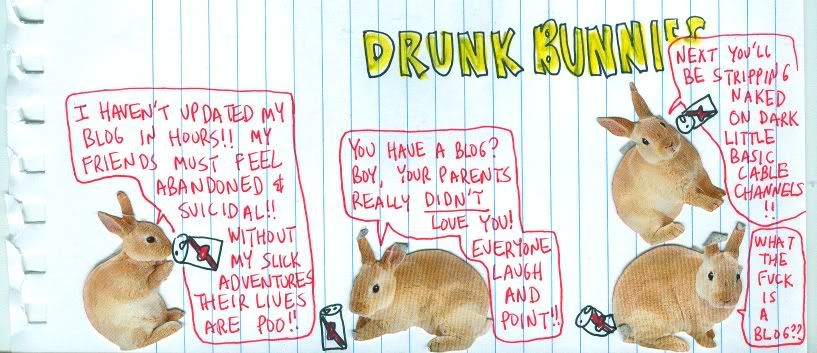 DRUNK BUNNIES
I HAVEN'T UPDATED MY
BLOG IN HOURS!! MY
FRIENDS MUST FEEL
ABANDONED &
SUICIDAL!!
WITHOUT
MY SLICK
ADVENTURES
THEIR LIVES
ARE POO!!
YOU HAVE A BLOG?
BOY, YOUR PARENTS
REALLY DIDN'T
LOVE YOU!
EVERYONE
LAUGH
AND
POINT!!
NEXT YOU'LL
BE STRIPPING
NAKED
ON DARK
LITTLE
BASIC
CABLE
CHANNELS
!!
WHAT
THE
FUCK
IS
A
BLOG??